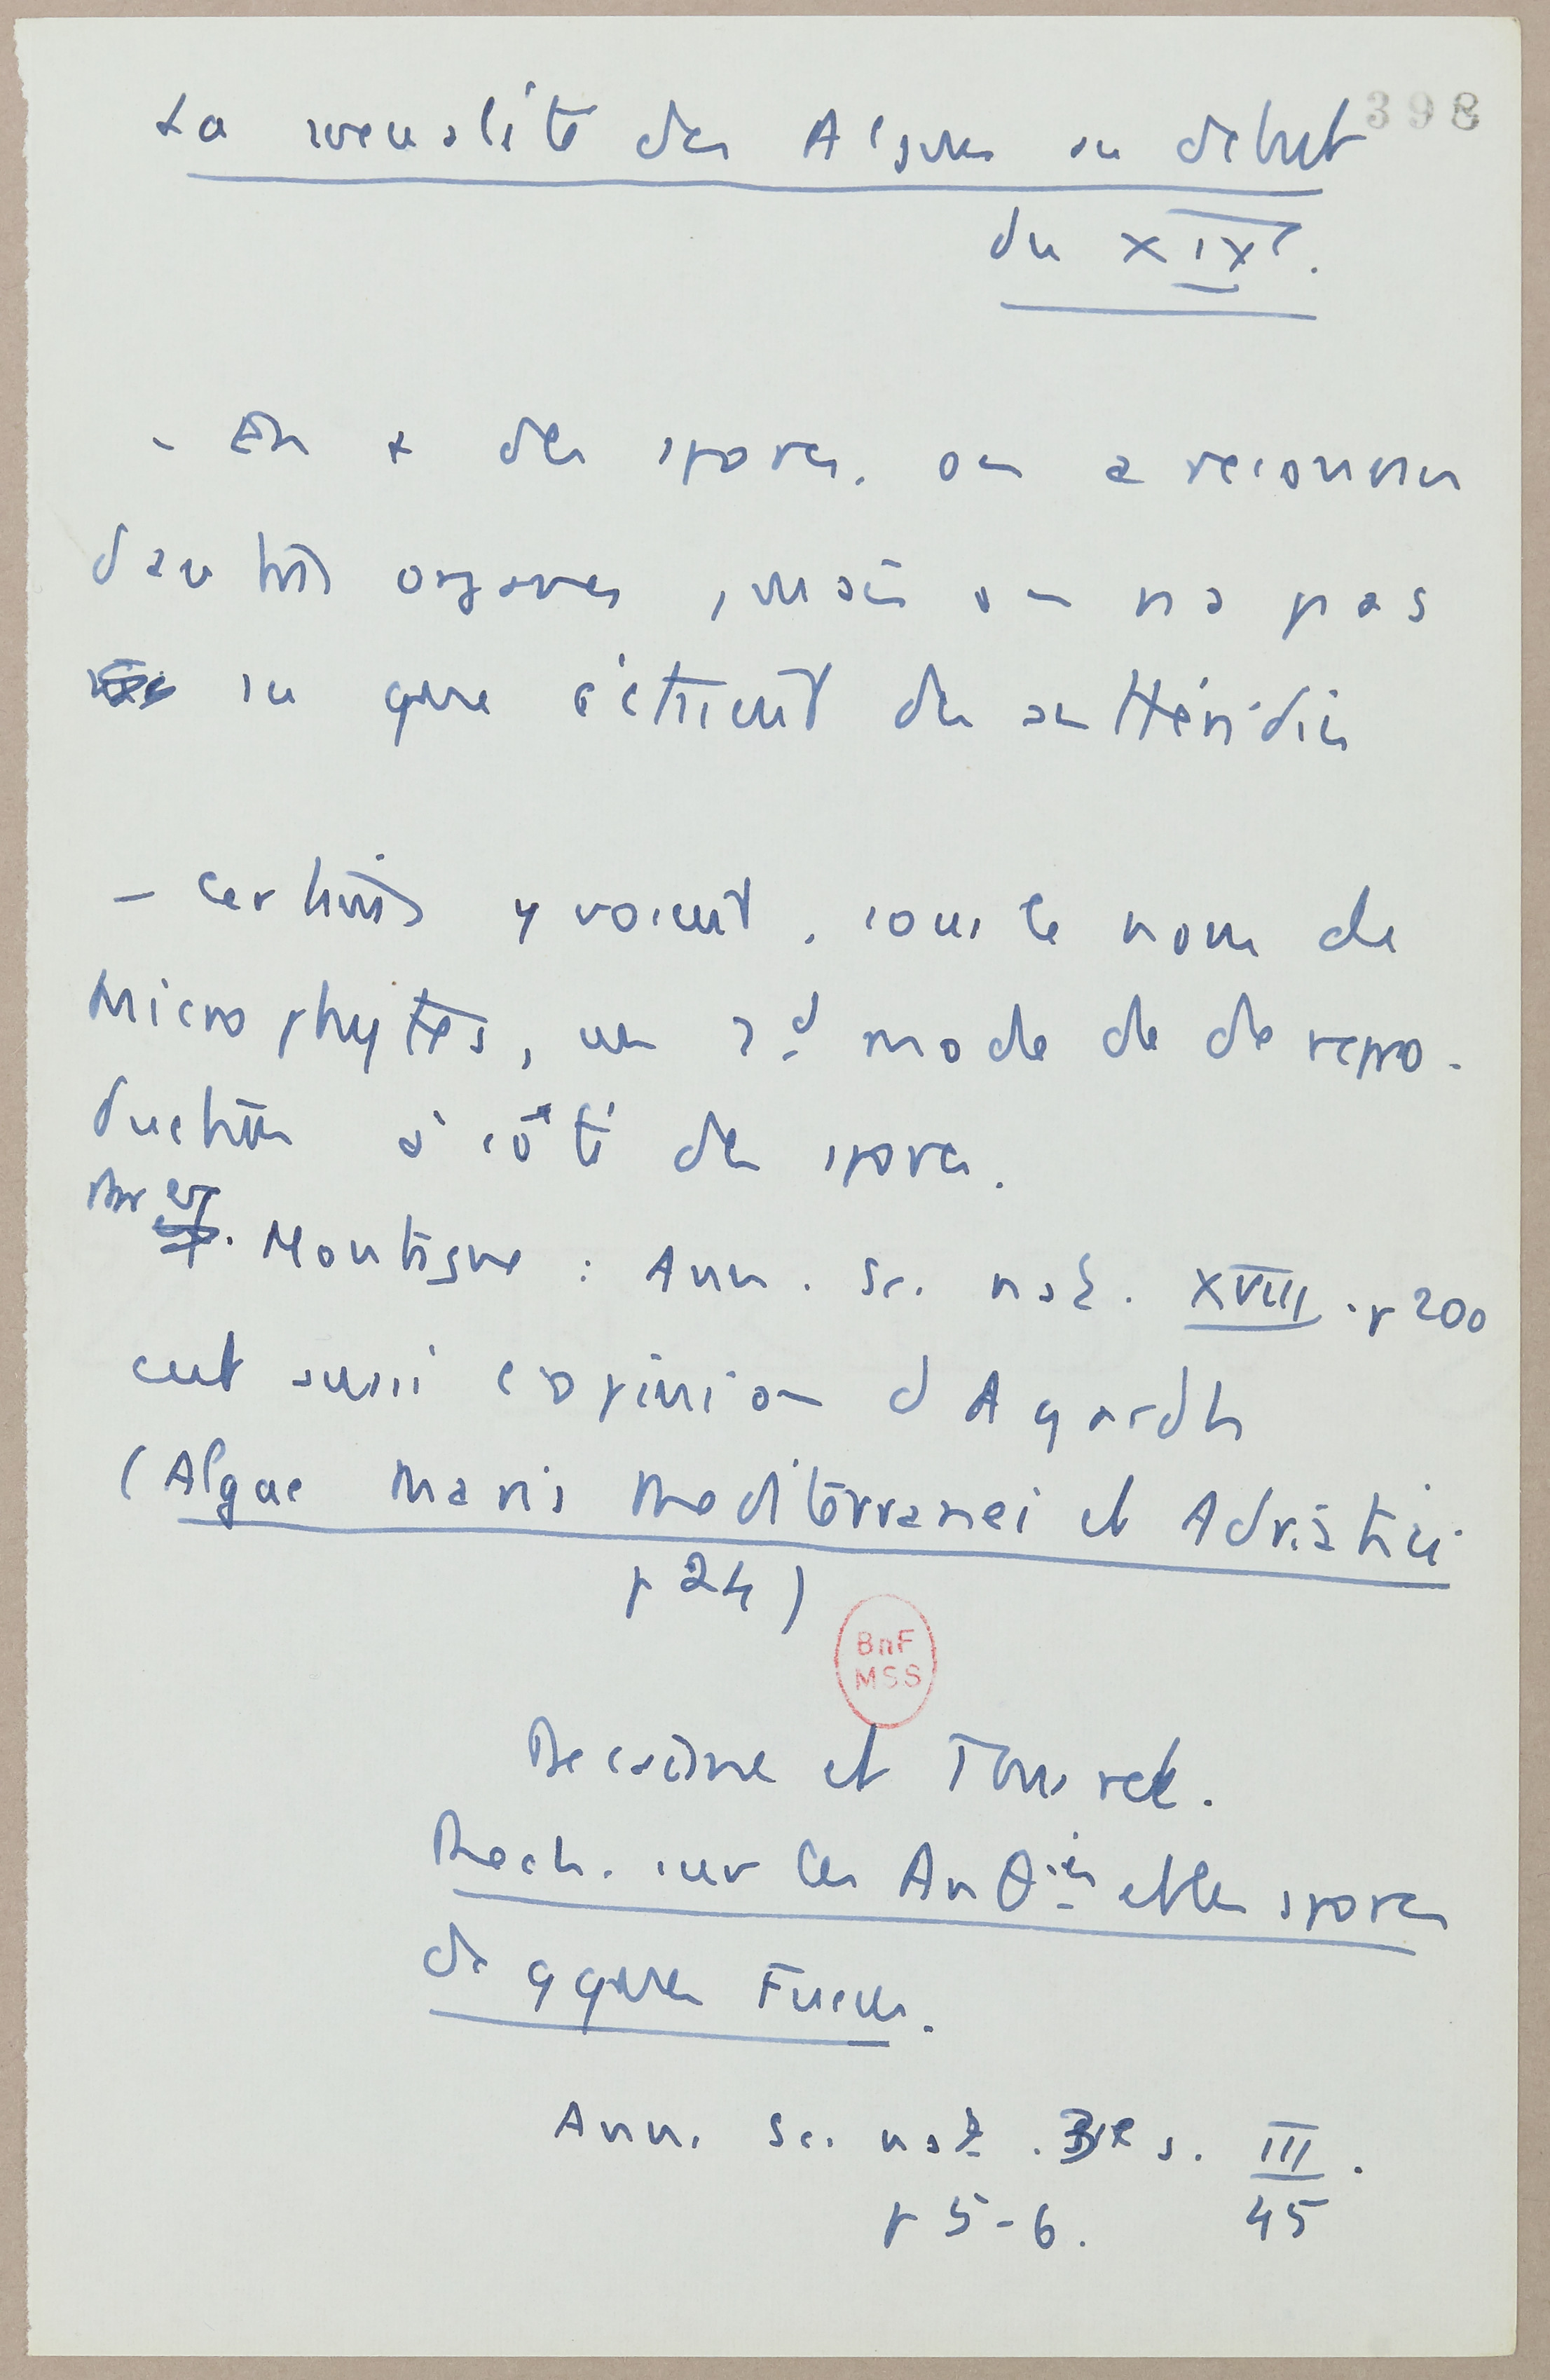 398
La sexualité des Algues au début
du XIXe.
- En + des spores, on a reconnu
dautres organes, mais on na pas
su que c'étaient des anthéridies
- Certains y voient, sous le nom de
Microphytes, un 2d mode de de repro-
duction à côté des spores.
Par ex. Montagne : Ann. Sc. nat. XVIII. p 200
cut aussi l opinion d Agardh
(Algae Maris Mediterranei et Adriatici
p 24)
BnF
MSS
Decaisne et Thuret.
Rech. sur les Anθies et les spores
de qques Fucus.
Ann. Sc. nat. 3e s. III.
p 5-6. 45